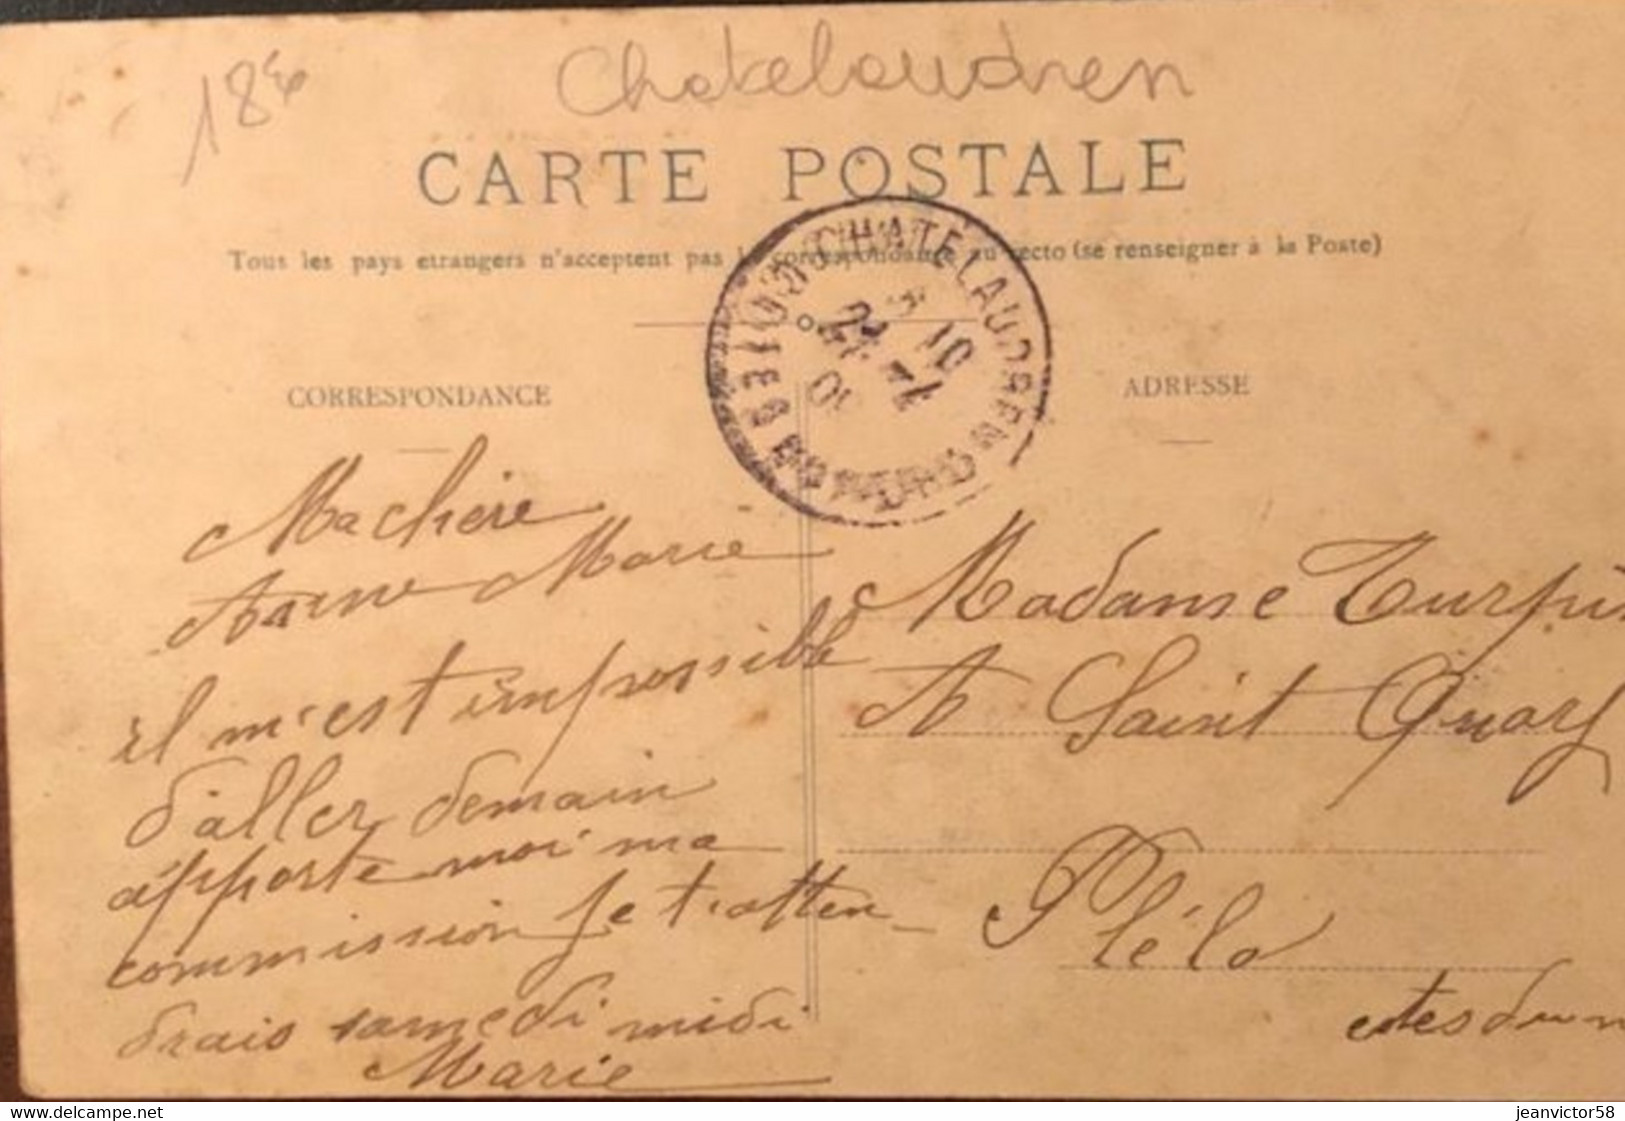 18€
Chatelaudren
CARTE POSTALE
Tous les pays etrangers n'acceptent pas la correspondance au recto (se renseigner à la Poste)
CHATELAUDREN
COTES DU NORD
10
24 -4
CORRESPONDANCE
Ma chère
Anne Marie
il m'est impossible
d'aller demain
apporte moi ma
commission je t'atten
drais samedi midi
Marie
ADRESSE
Madame Turpin
A Saint Quay
Plélo
cotes du n
www.delcampe.net
jeanvictor58